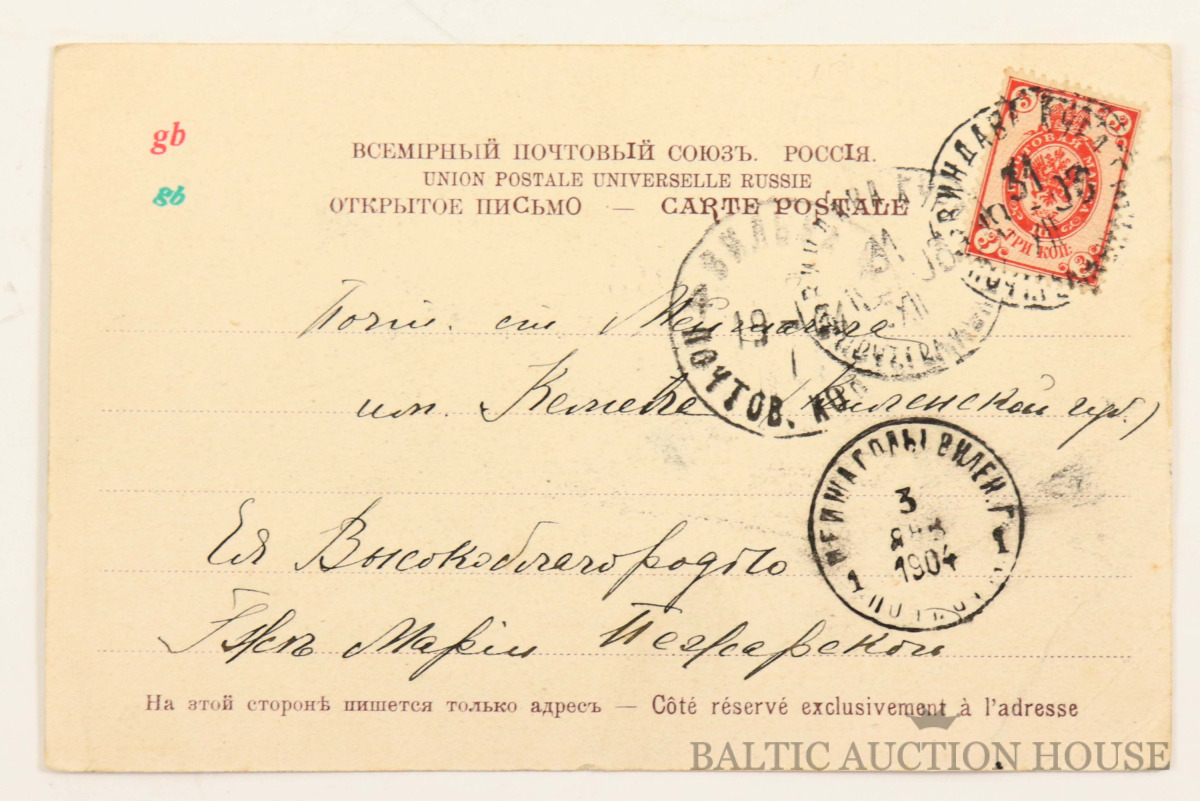 gb
ВСЕМІРНЫЙ ПОЧТОВЫЙ СОЮЗЪ. РОССІЯ.
gb
UNION POSTALE UNIVERSELLE RUSSIE
ОТКРЫТОЕ ПИСЬМО — CARTE POSTALE
ВИНДАВА
31 XII 03
ТРИ КОП.
3
ПОЧТОВ.
Почт. ст Мейшагола
им. (Виленской губ)
МЕЙШАГОЛЫ ВИЛЕН. Г.
3
ЯНВ
1904
1 1
Ея Высокоблагородію
Гжѣ Маріи
На этой сторонѣ пишется только адресъ — Côté réservé exclusivement à l'adresse
BALTIC AUCTION HOUSE